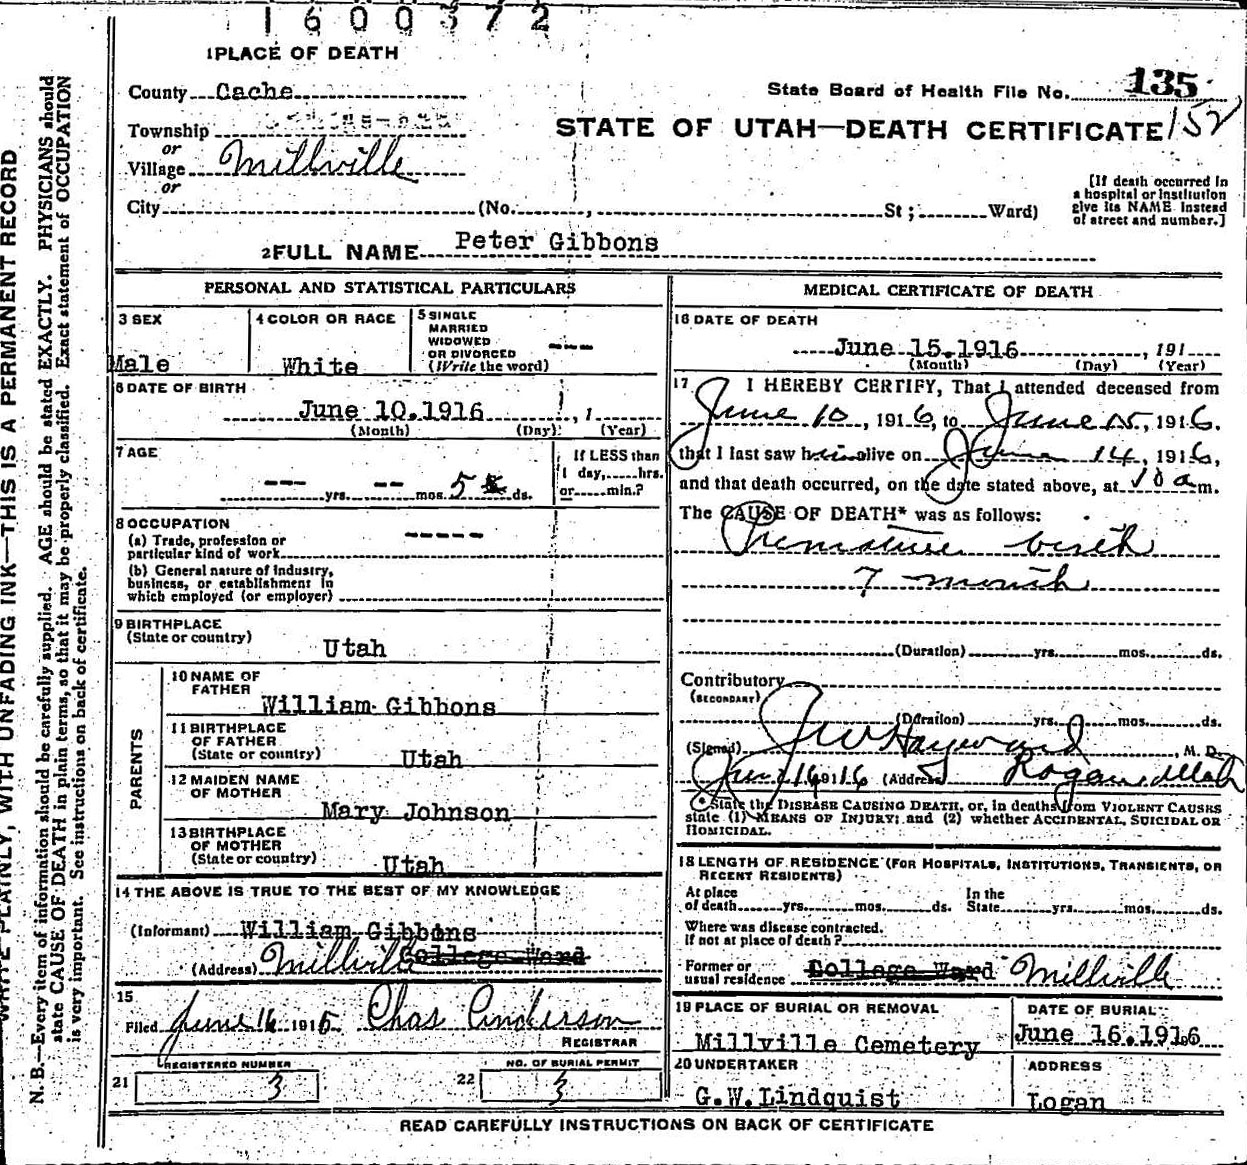 1600372
1 PLACE OF DEATH
County Cache
State Board of Health File No. 135
Township
STATE OF UTAH—DEATH CERTIFICATE 152
or
Village Millville
or
City (No. , St ; Ward)
[If death occurred in
a hospital or institution
give its NAME instead
of street and number.]
2 FULL NAME Peter Gibbons
PERSONAL AND STATISTICAL PARTICULARS
3 SEX
Male
4 COLOR OR RACE
White
5 SINGLE
MARRIED
WIDOWED
OR DIVORCED
(Write the word)
---
6 DATE OF BIRTH
June 10.1916 , 1
(Month) (Day) (Year)
7 AGE
--- yrs. -- mos. 5 ds.
If LESS than
1 day, hrs.
or min.?
8 OCCUPATION
(a) Trade, profession or
particular kind of work -----
(b) General nature of industry,
business, or establishment in
which employed (or employer)
9 BIRTHPLACE
(State or country) Utah
PARENTS
10 NAME OF
FATHER
William Gibbons
11 BIRTHPLACE
OF FATHER
(State or country) Utah
12 MAIDEN NAME
OF MOTHER
Mary Johnson
13 BIRTHPLACE
OF MOTHER
(State or country) Utah
14 THE ABOVE IS TRUE TO THE BEST OF MY KNOWLEDGE
(Informant) William Gibbons
(Address) Millville College Ward
15
Filed June 16 1916 Chas Anderson
REGISTRAR
REGISTERED NUMBER
21 3
NO. OF BURIAL PERMIT
22 3
MEDICAL CERTIFICATE OF DEATH
16 DATE OF DEATH
June 15.1916 , 191
(Month) (Day) (Year)
17 I HEREBY CERTIFY, That I attended deceased from
June 10, 1916, to June 15, 1916.
that I last saw him alive on June 14, 1916,
and that death occurred, on the date stated above, at 10 a m.
The CAUSE OF DEATH* was as follows:
Premature birth
7 month
(Duration) yrs. mos. ds.
Contributory
(SECONDARY)
(Duration) yrs. mos. ds.
(Signed) J W Hayward M. D.
June 16 1916 (Address) Logan Utah
*State the DISEASE CAUSING DEATH, or, in deaths from VIOLENT CAUSES
state (1) MEANS OF INJURY; and (2) whether ACCIDENTAL, SUICIDAL OR
HOMICIDAL.
18 LENGTH OF RESIDENCE (FOR HOSPITALS, INSTITUTIONS, TRANSIENTS, OR
RECENT RESIDENTS)
At place
of death yrs. mos. ds.
In the
State yrs. mos. ds.
Where was disease contracted.
If not at place of death?
Former or
usual residence College Ward Millville
19 PLACE OF BURIAL OR REMOVAL
Millville Cemetery
DATE OF BURIAL
June 16.1916
20 UNDERTAKER
G.W.Lindquist
ADDRESS
Logan
READ CAREFULLY INSTRUCTIONS ON BACK OF CERTIFICATE
WRITE PLAINLY, WITH UNFADING INK—THIS IS A PERMANENT RECORD
N. B.—Every item of information should be carefully supplied. AGE should be stated EXACTLY. PHYSICIANS should
state CAUSE OF DEATH in plain terms, so that it may be properly classified. Exact statement of OCCUPATION
is very important. See instructions on back of certificate.